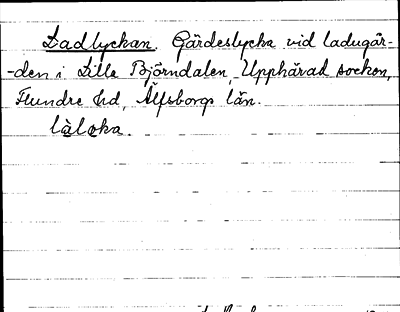 Ladlyckan. Gärdeslycka vid ladugår-
-den i Lilla Björndalen, Upphärad socken,
Flundre hd, Älfsborgs län.
làlɔka.